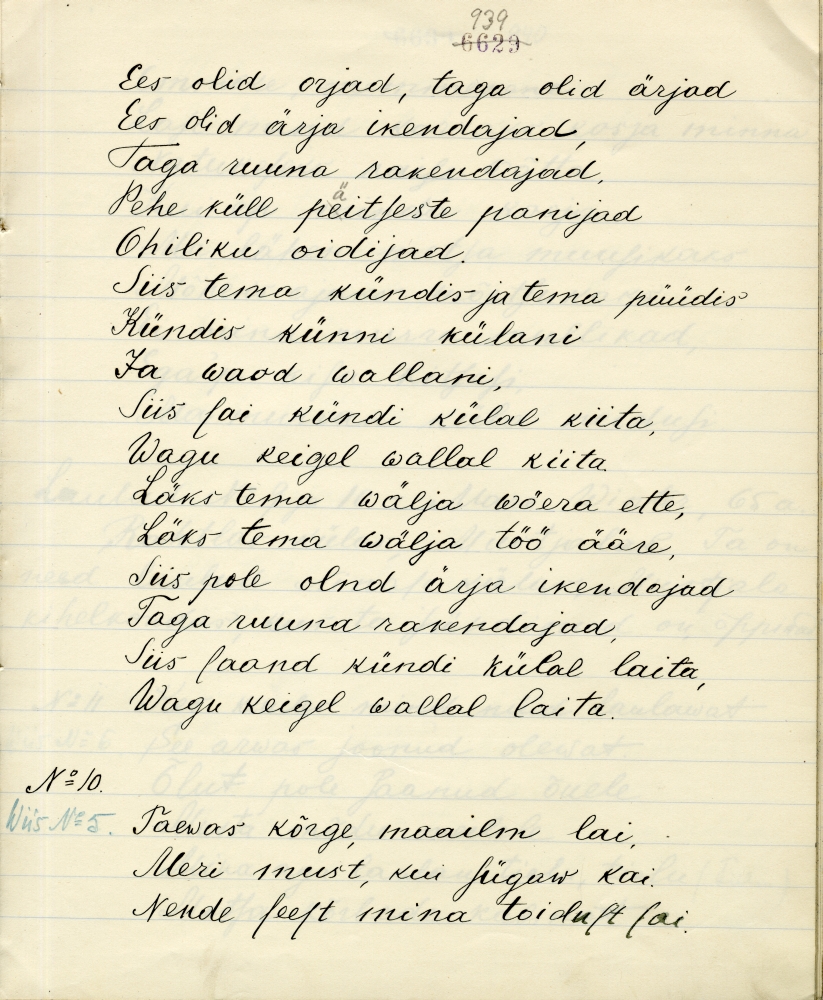 939
6629
Ees olid orjad, taga olid ärjad
Ees olid ärja ikendajad,
Taga ruuna rakendajad,
Pehe küll peitſeste panijad
ä
Ohiliku oidijad.
Siis tema kündis ja tema püüdis
Kündis künni külani
Ja waod wallani,
Siis ſai kündi külal kiita,
Wagu keigel wallal kiita.
Läks tema wälja wöera ette,
Läks tema wälja töö ääre,
Siis pole olnd ärja ikendajad
Taga ruuna rakendajad,
Siis ſaand kündi külal laita,
Wagu keigel wallal laita.
No 10.
Wiis No 5. Taewas kõrge, maailm lai,
Meri must, kui ſügaw kai.
Nende ſeeſt mina toiduſt ſai.